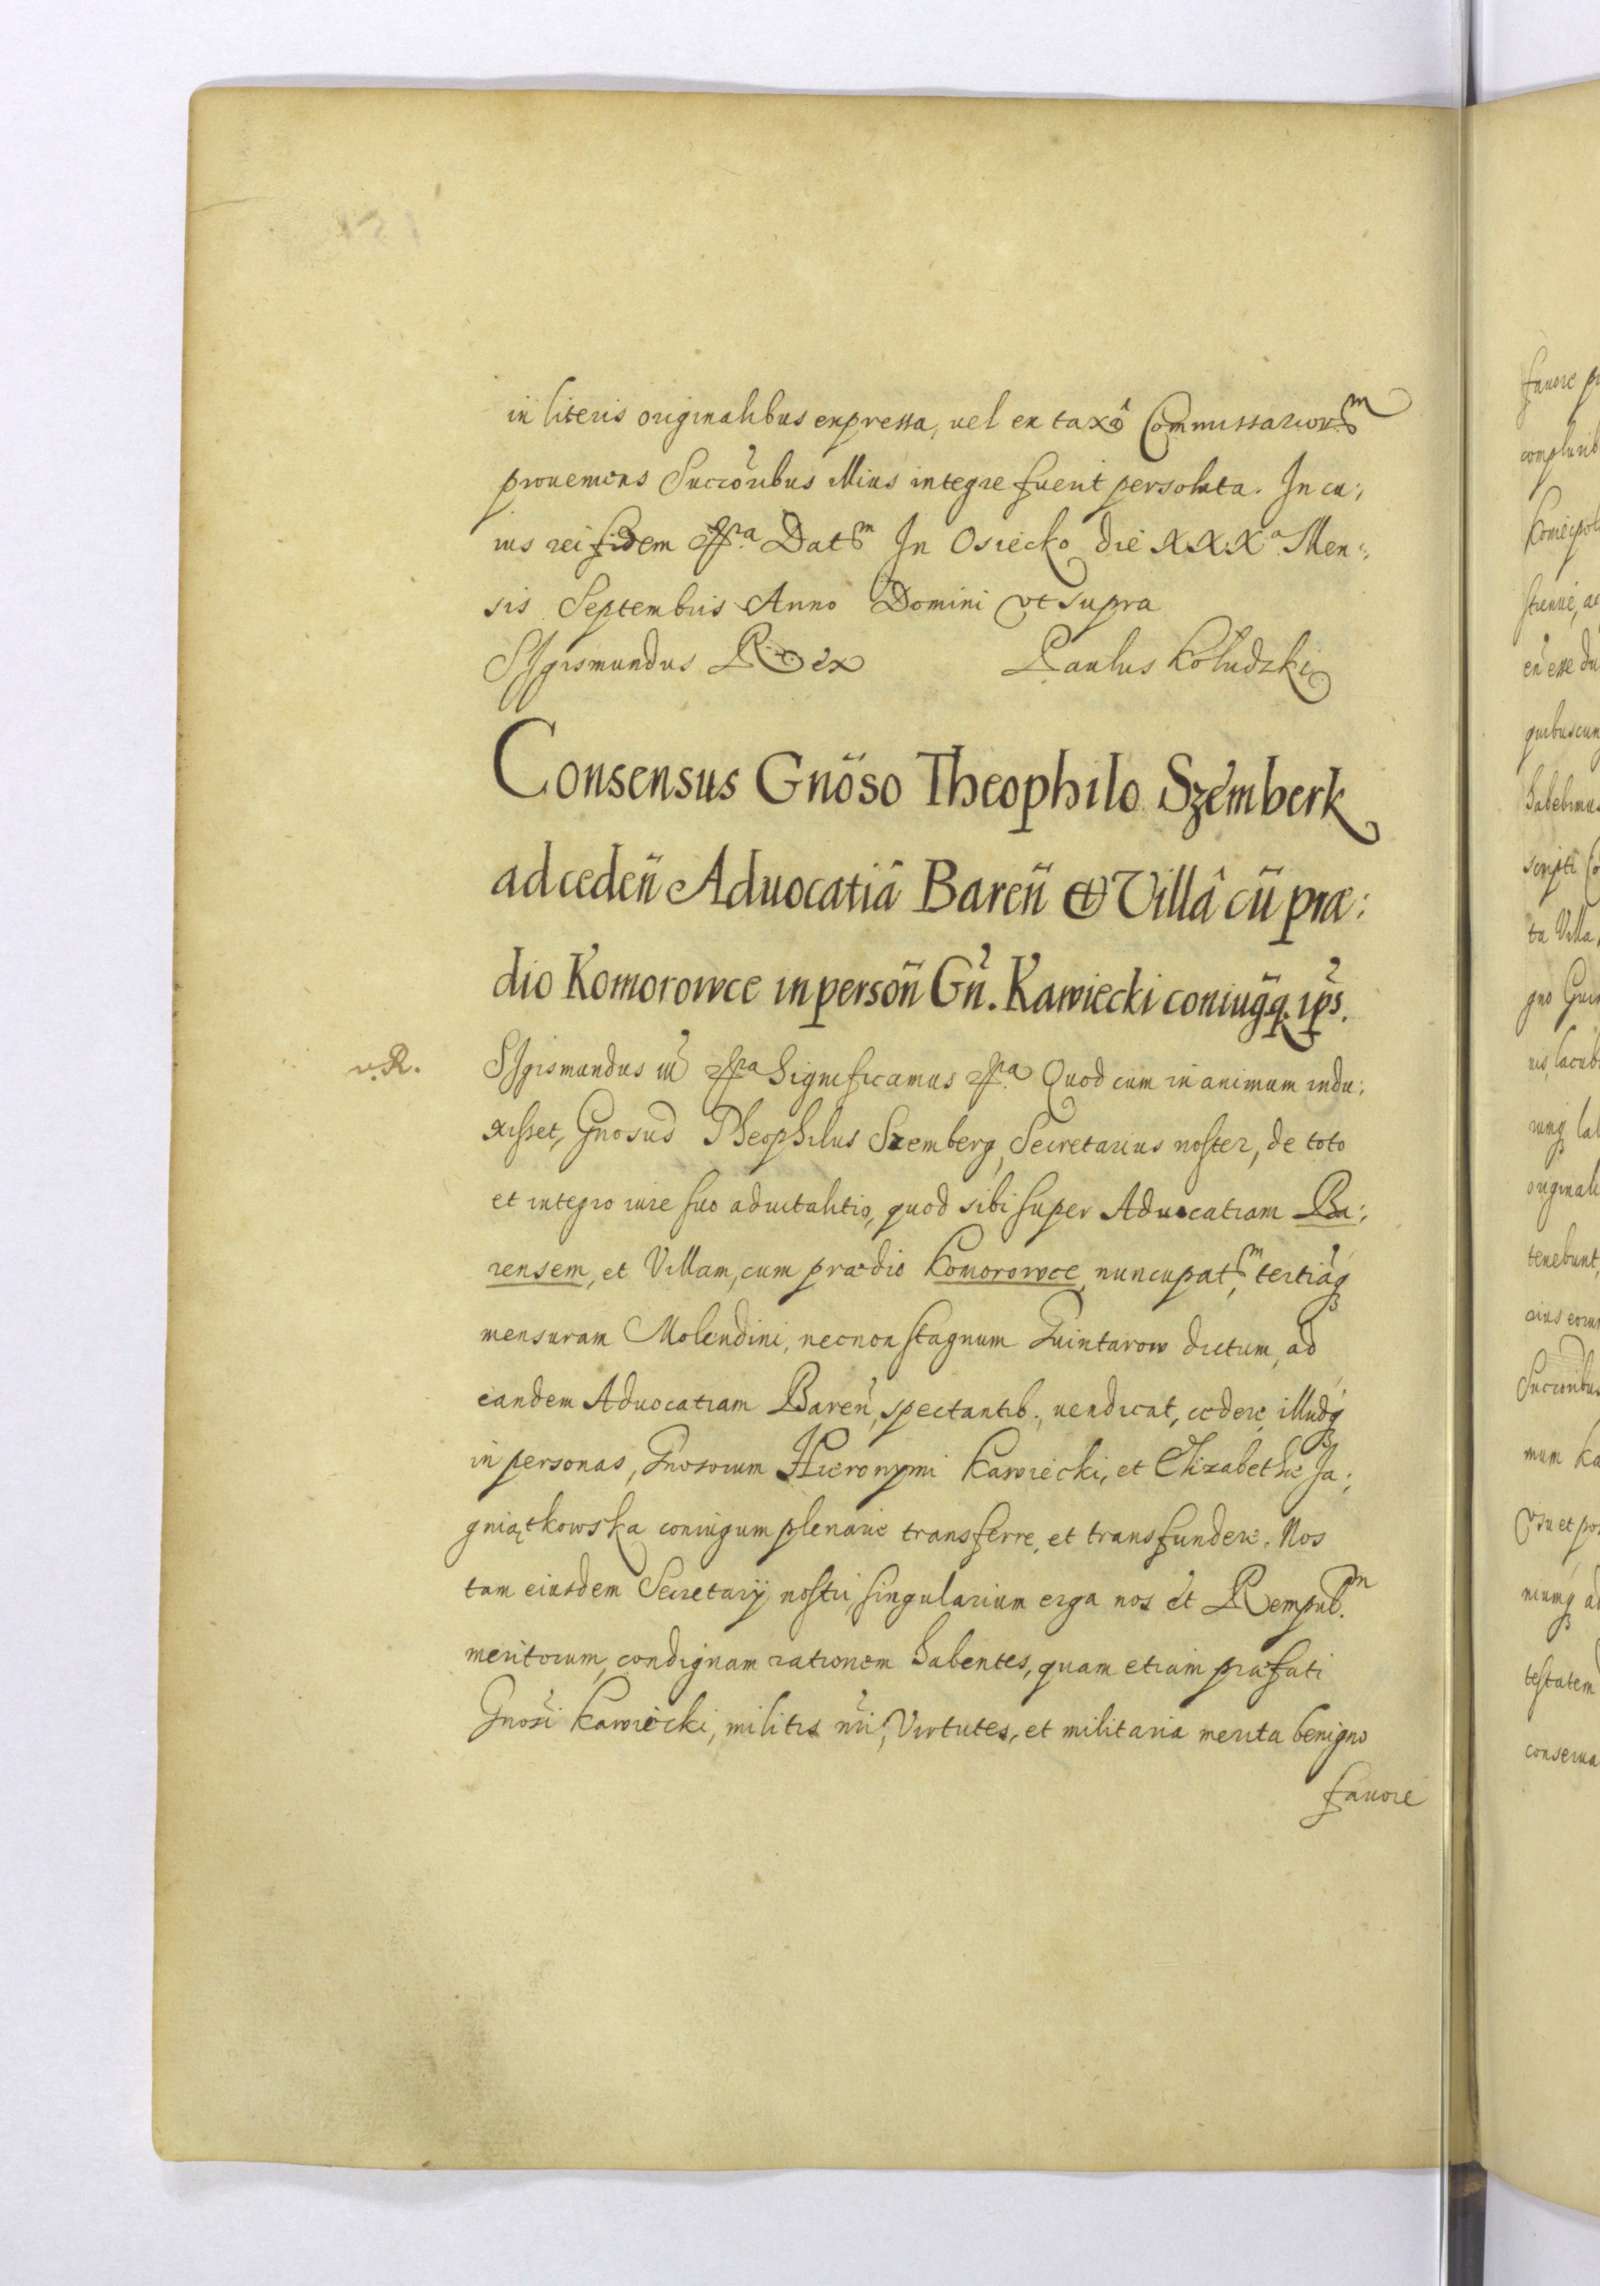 in literis originalibus expressa, uel ex taxâ Commissarior.m
proueniens Succoribus illius integre fuerit persoluta. In cu:,
ius rei fidem &ra Datm In Osiecko die XXXa Men:,
sis Septembris Anno Domini vt supra
SIgismundus Rex Paulus Kołudzki
Consensus Gnöso Theophilo Szemberk
ad ceden̄ Aduocatiâ Baren̄ & Villâ cū præ:
dio Komorowce in person̄ Gn̄. Kawiecki coniugq. ips.
v.R.
SIgismundus iii &ra Significamus &ra Quod cum in animum indu:,
xisset, Gnosus Theophilus Szemberg, Secretarius noster, de toto
et integro iure suo aduitalitio, quod sibi super Aduocatiam Ba:,
rensem, et Villam, cum prædio Komorowce, nuncupatm, tertiaq
mensuram Molendini, necnon stagnum Quintarow dictum, ad
eandem Aduocatiam Baren, spectantib., uendicat, cedere, illudq
in personas, Gnosorum Hieronymi Kawiecki, et Elizabethæ Ja:,
gniątkowska coniugum plenarie transferre, et transfundere. Nos
tam eiusdem Secretarij nostri, singularium erga nos et Rempub.m
meritorum, condignam rationem habentes, quam etiam præfati
Gnosi Kawiecki, militis nri, Virtutes, et militaria merita benigno
fauore
favore
Koniecpol
quibuscun
habebimus
scripti
ta Villa,
tenebunt,
mum Ka
testatem
conserua